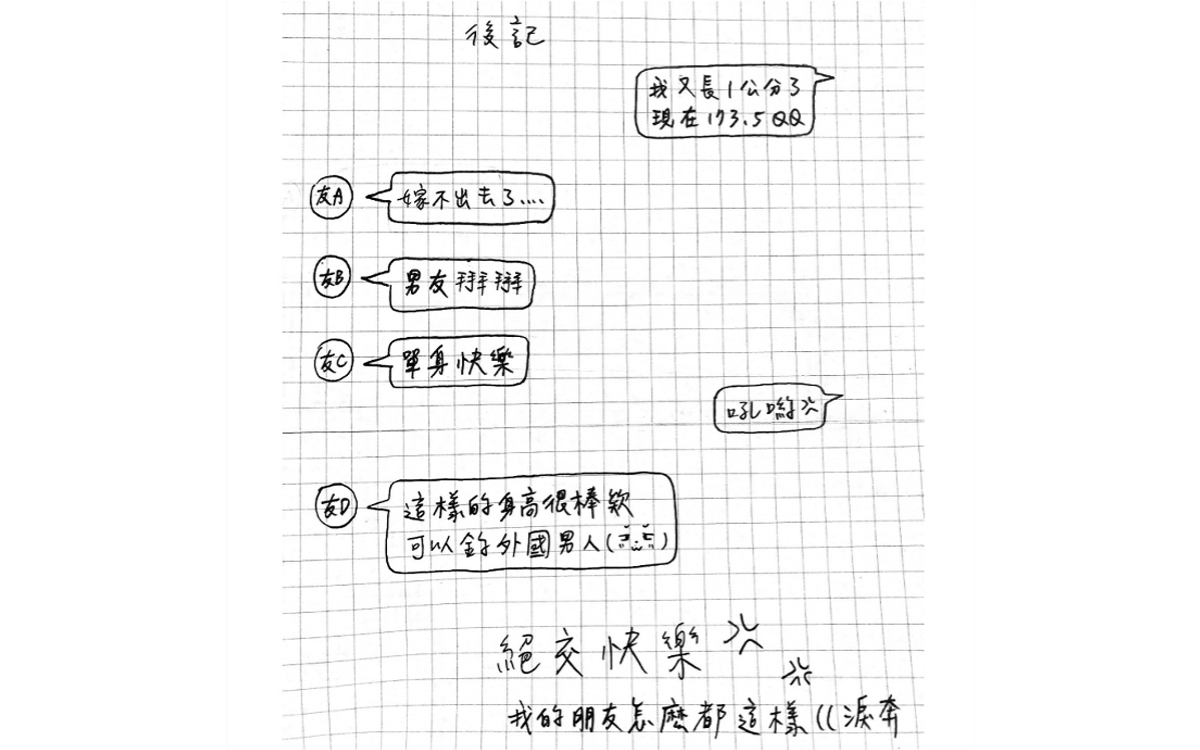 後記
我又長1公分了
現在173.5 QQ
友A
嫁不出去了....
友B
男友掰掰
友C
單身快樂
吼喲
友D
這樣的身高很棒欸
可以釣外國男人(
絕交快樂
我的朋友怎麼都這樣((淚奔